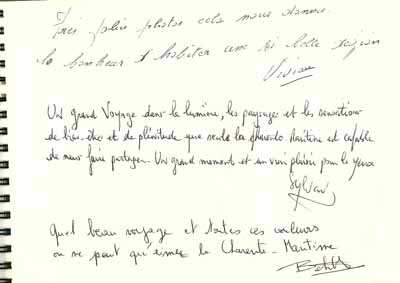 Très jolies photos cela nous donne
le bonheur d'habiter une si belle région
Viviane
Un grand Voyage dans la lumière, les paysages et les sensations
de bien-être et de plénitude que seule la Charente Maritime est capable
de nous faire partager. Un grand moment et un vrai plaisir pour les yeux
Sylvain
Quel beau voyage et toutes ces couleurs
on ne peut qu'aimer la Charente-Maritime